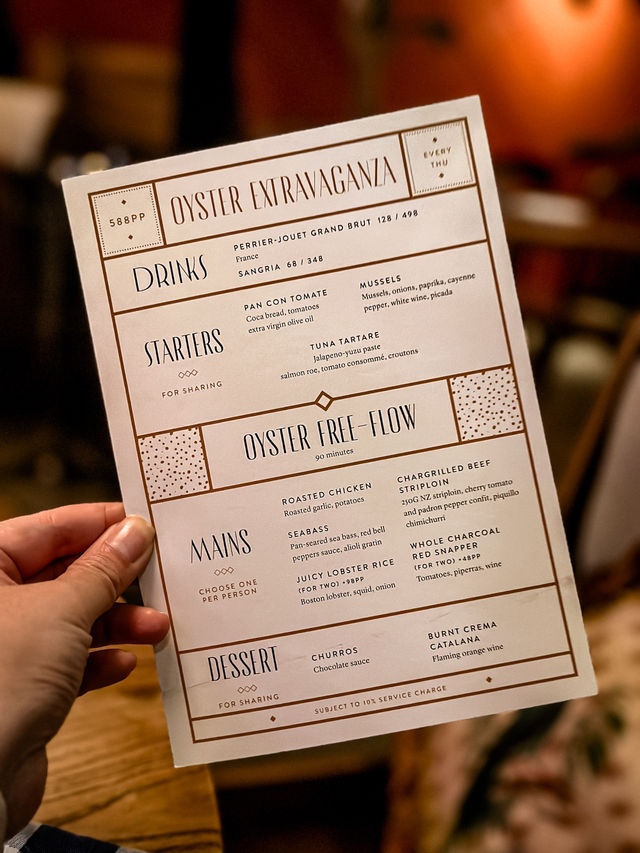 588PP
OYSTER EXTRAVAGANZA
EVERY
THU
DRINKS
PERRIER-JOUET GRAND BRUT 128 / 498
France
SANGRIA 68 / 348
STARTERS
FOR SHARING
PAN CON TOMATE
Coca bread, tomatoes
extra virgin olive oil
MUSSELS
Mussels, onions, paprika, cayenne
pepper, white wine, picada
TUNA TARTARE
Jalapeno-yuzu paste
salmon roe, tomato consommé, croutons
OYSTER FREE-FLOW
90 minutes
MAINS
CHOOSE ONE
PER PERSON
ROASTED CHICKEN
Roasted garlic, potatoes
SEABASS
Pan-seared sea bass, red bell
peppers sauce, alioli gratin
JUICY LOBSTER RICE
(FOR TWO) +98PP
Boston lobster, squid, onion
CHARGRILLED BEEF
STRIPLOIN
250G NZ striploin, cherry tomato
and padron pepper confit, piquillo
chimichurri
WHOLE CHARCOAL
RED SNAPPER
(FOR TWO) +48PP
Tomatoes, piperras, wine
DESSERT
FOR SHARING
CHURROS
Chocolate sauce
BURNT CREMA
CATALANA
Flaming orange wine
SUBJECT TO 10% SERVICE CHARGE